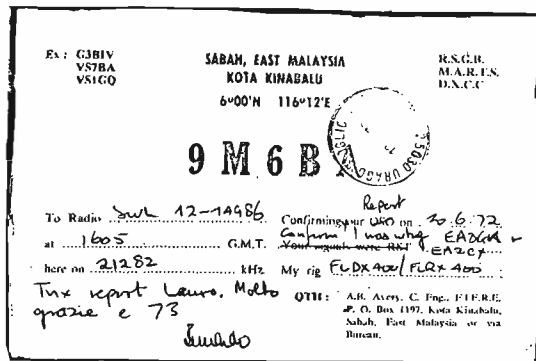 Ex : G3BIV
VS7BA
VS1GQ
SABAH, EAST MALAYSIA
KOTA KINABALU
6°00'N 116°12'E
R.S.G.B.
M.A.R.T.S.
D.X.C.C
5030 URAGO
9 M 6 B
Report
To Radio swl 12-14986 Confirming your QSO on 30.6.72
Confirm I was wkg EA2CX
at 1605 G.M.T. Your signals were RST
here on 21282 kHz My rig FLDX400/FLRX400
Tnx report Lauro. Molto
grazie e 73
QTH: A.B. Avery, C. Eng., F.I.E.R.E.
P. O. Box 1197, Kota Kinabalu,
Sabah, East Malaysia or via
Bureau.